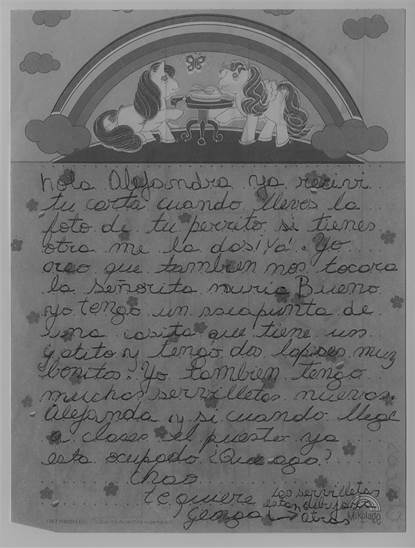 hola Alejandra ya recivi
tu carta cuando lleves la
foto de tu perrito si tienes
otra me la das¿Ya? Yo
creo que tambien nos tocara
la señorita nuria Bueno
yo tengo un sacapunta de
una casita que tiene un
gatito y tengo dos lapises muy
bonitos. Yo tambien tengo
muchas servilletas nuevas.
Alejanda y si cuando llege
a clases el puesto ya
esta ocupado ¿Que ago?
Chao
te quiere
las servilletas
estan dibujadas
atras